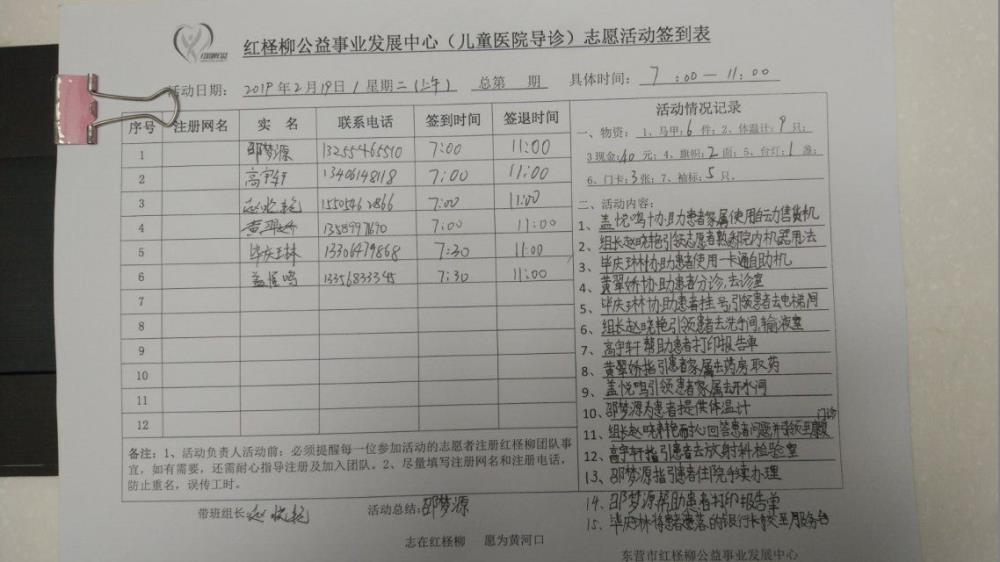 红柽柳公益事业发展中心（儿童医院导诊）志愿活动签到表
活动日期： 2019年2月19日/星期二(上午) 总第 期 具体时间： 7:00—11:00
序号 注册网名 实 名 联系电话 签到时间 签退时间
1 邵梦源 13255465510 7:00 11:00
2 高宇轩 13406148118 7:00 11:00
3 赵晓艳 15505462866 7:00 11:00
4 黄翠娇 13589971690 7:00 11:00
5 毕庆琳 13306479868 7:30 11:00
6 盖悦鸣 13356833345 7:30 11:00
7
8
9
10
11
12
备注：1、活动负责人活动前：必须提醒每一位参加活动的志愿者注册红柽柳团队事
宜，如有需要，还需耐心指导注册及加入团队。2、尽量填写注册网名和注册电话，
防止重名，误传工时。
带班组长 赵晓艳 活动总结：邵梦源
活动情况记录
一、物资： 1、马甲：6 件；2、体温计：9 只；
3现金：40 元；4、旗帜：2 面；5、台灯：1 盏；
6、门卡：3张；7、袖标：5 只。
二、活动内容：
1、盖悦鸣协助患者家属使用自动售货机
2、组长赵晓艳引领志愿者熟悉院内机器用法
3、毕庆琳协助患者使用一卡通自助机
4、黄翠娇协助患者分诊，去诊室
5、毕庆琳协助患者挂号，引领患者去电梯间
6、组长赵晓艳引领患者去洗手间，输液室
7、高宇轩帮助患者打印报告单
8、黄翠娇指引患者家属去药房取药
9、盖悦鸣引领患者家属去开水间
10、邵梦源为患者提供体温计
11、组长赵晓艳耐心回答患者问题并引领至门诊
12、高宇轩指引患者去放射科检验室
13、邵梦源指引患者住院手续办理
14、邵梦源帮助患者打印报告单
15、毕庆琳将患者遗落的银行卡转交至服务台
志在红柽柳 愿为黄河口
东营市红柽柳公益事业发展中心